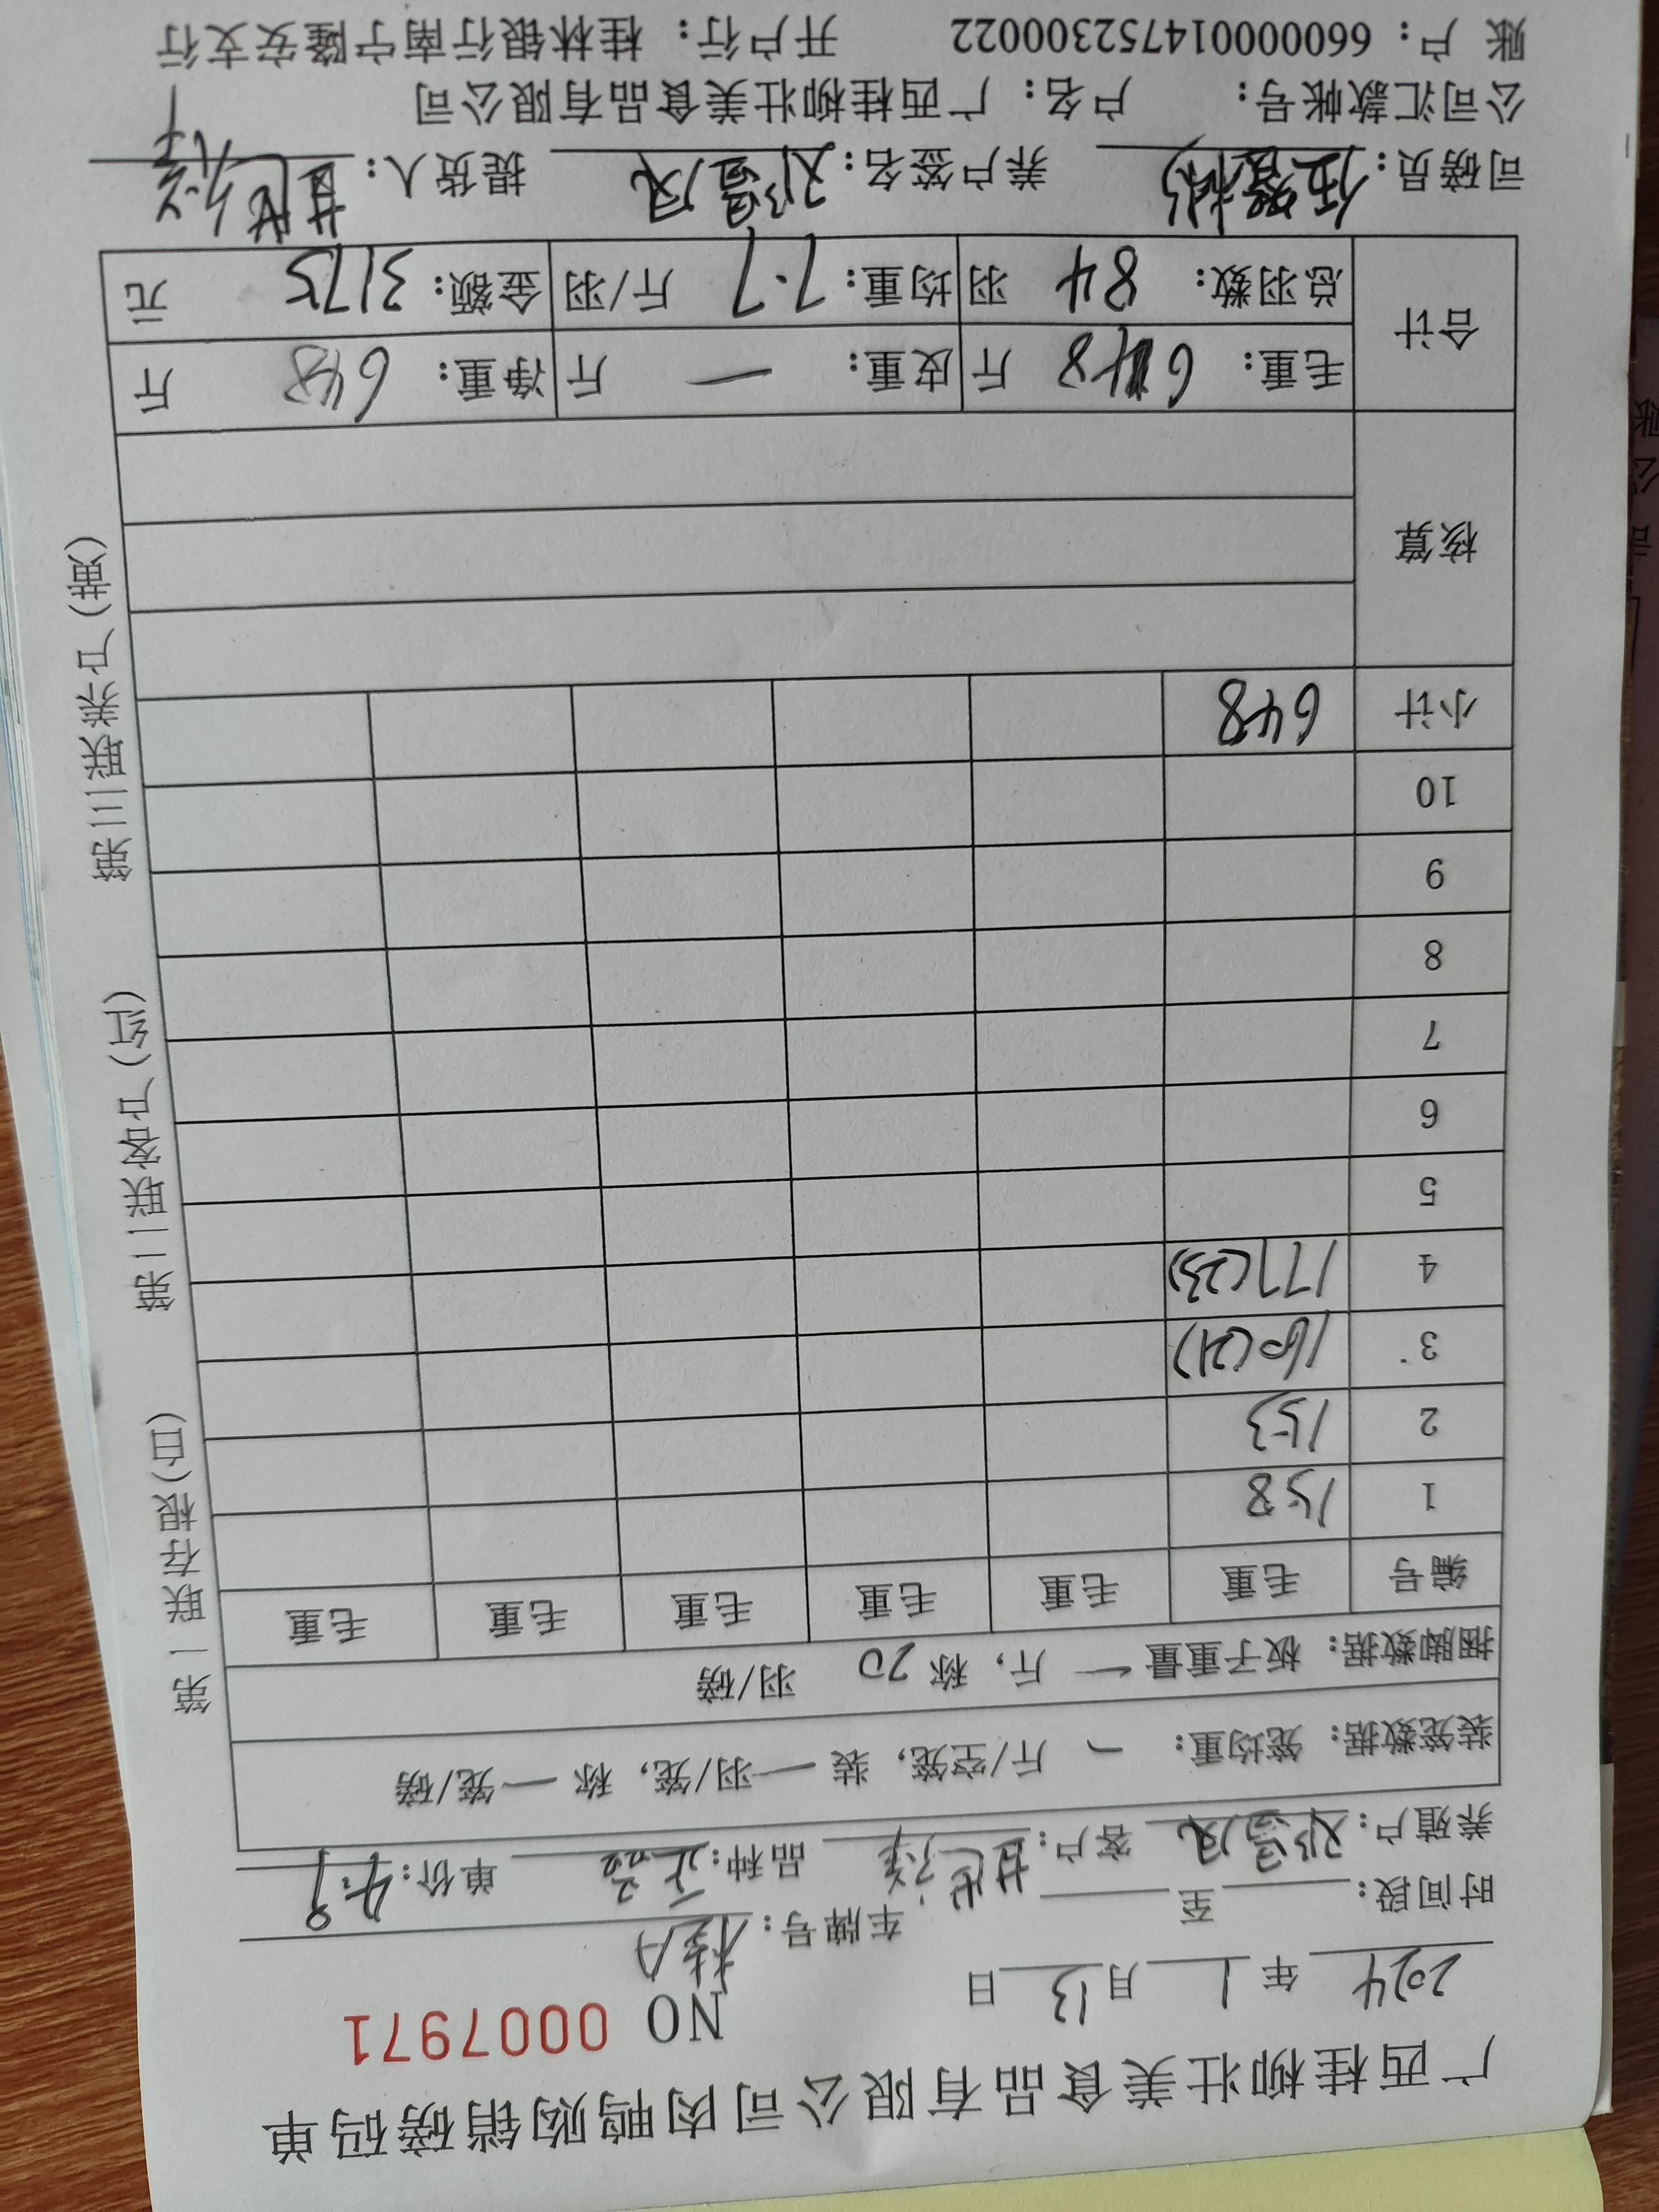 广西桂柳壮美食品有限公司肉鸭购销磅码单
NO 0007971
2024年1月13日 车牌号：桂A
时间段： 至
养殖户：邓雪凤 客户：甘世泽 品种： 单价：4.9
装笼数据：笼均重：一 斤/空笼，装一羽/笼，称一笼/磅
捆脚数据：板子重量一斤，称20 羽/磅
编号 毛重 毛重 毛重 毛重 毛重 毛重
1 158
2 153
3 160(21)
4 177(23)
5
6
7
8
9
10
小计 648
核算
合计 毛重：648 斤 皮重：一 斤 净重：648 斤
总羽数：84 羽 均重：7.7 斤/羽 金额：3175 元
司磅员： 养户签名：邓雪凤 提货人：甘世泽
公司汇款帐号： 户名：广西桂柳壮美食品有限公司
账 户：660000014752300022 开户行：桂林银行南宁隆安支行
第一联存根(白) 第二联客户(红) 第三联养户(黄)